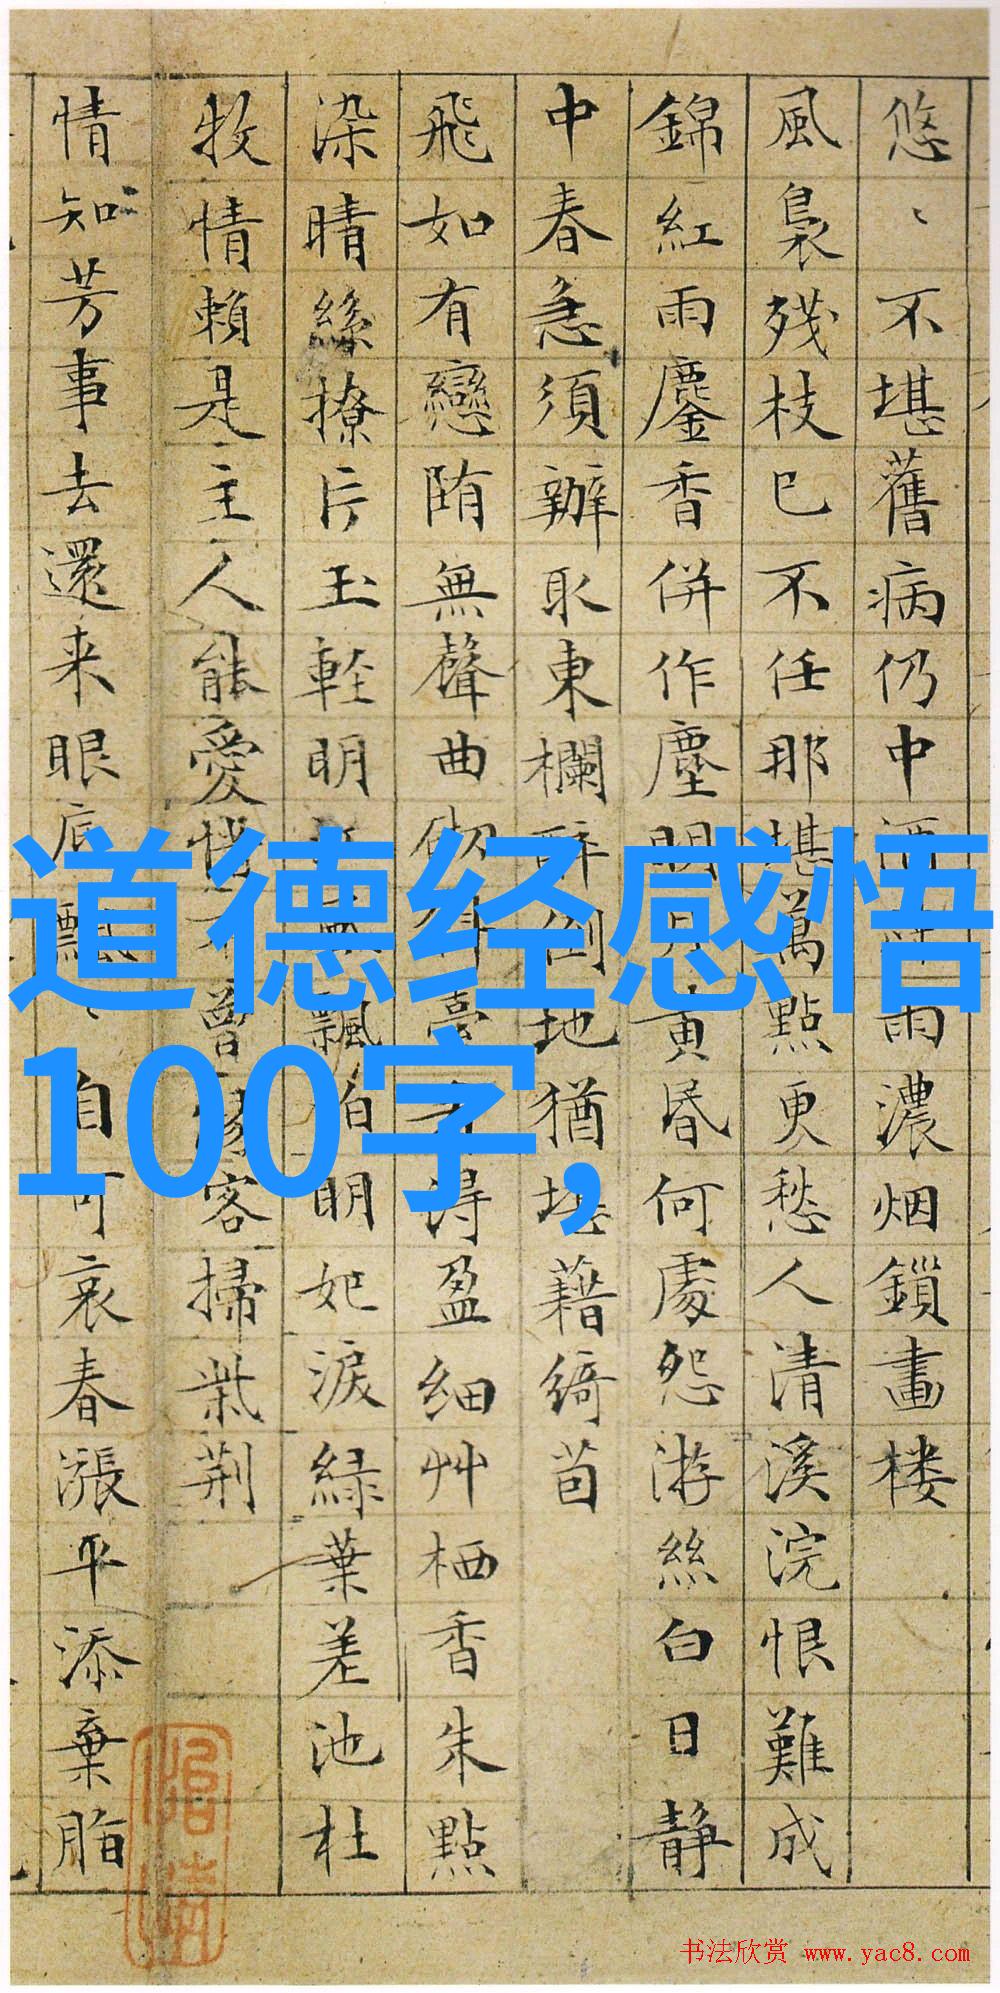 悠ヽ不堪舊病仍中酒雨濃烟鎖畫楼
風裊残枝已不任那堪萬點更愁人清溪浣恨難成
錦紅雨鏖香併作塵明月黄昏何處怨游絲白日静
中春急須辦取東欄醉倒地猶堪藉綺茵
飛如有戀陏無聲曲砌得盈細艸栖香朱點
染晴絲撩片玉輊明無飄泊明妃淚緑葉差池杜
牧情賴是主人能愛惜不曾緣客掃柴荆
情知芳事去還来眼底飄ヽ自可哀春漲平添棄脂
道德经感悟
100字,
书法欣赏 www.yac8.com